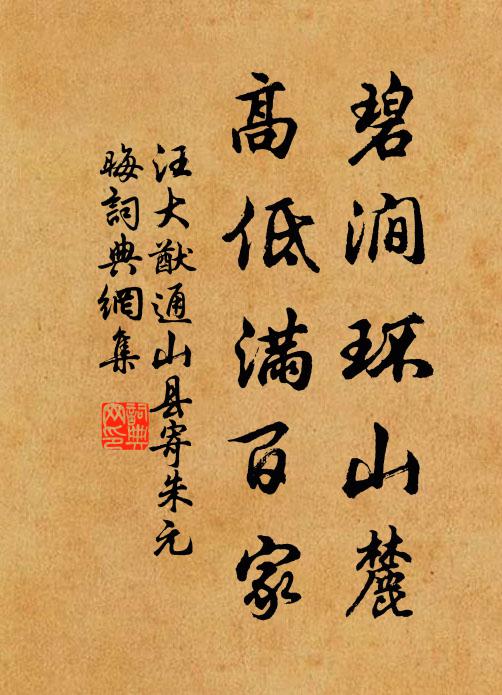 碧涧环山麓
高低满百家
汪大猷通山县寄朱元
晦詞典網集
詞典
网印